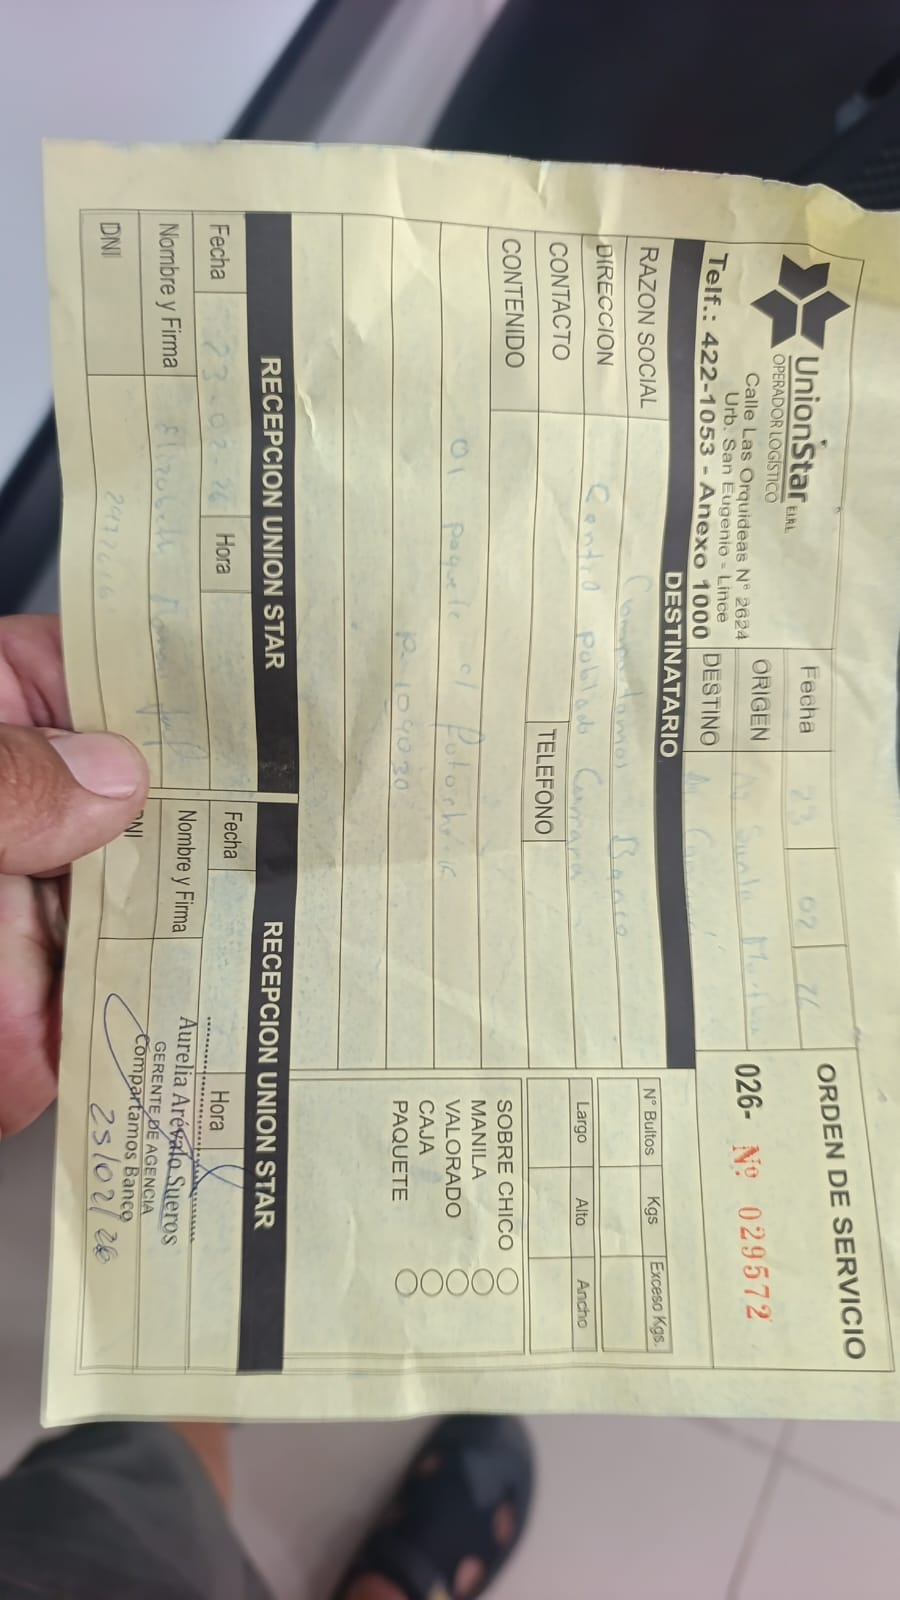 UnionStar E.I.R.L.
OPERADOR LOGÍSTICO
Calle Las Orquideas N° 2624
Urb. San Eugenio - Lince
Telf.: 422-1053 - Anexo 1000
Fecha 23 02 26
ORIGEN Ag
DESTINO Ag
ORDEN DE SERVICIO
026- Nº 029572
DESTINATARIO
RAZON SOCIAL Compartamos Banco
DIRECCION Centro poblado
CONTACTO
TELEFONO
CONTENIDO
01 paquete c/
P-104030
N° Bultos Kgs Exceso Kgs.
Largo Alto Ancho
SOBRE CHICO
MANILA
VALORADO
CAJA
PAQUETE
RECEPCION UNION STAR
Fecha 23-02-26 Hora
Nombre y Firma Elizabeth
DNI
RECEPCION UNION STAR
Fecha Hora
Nombre y Firma
DNI
Aurelia Arévalo Sueros
GERENTE DE AGENCIA
Compartamos Banco
25/02/26